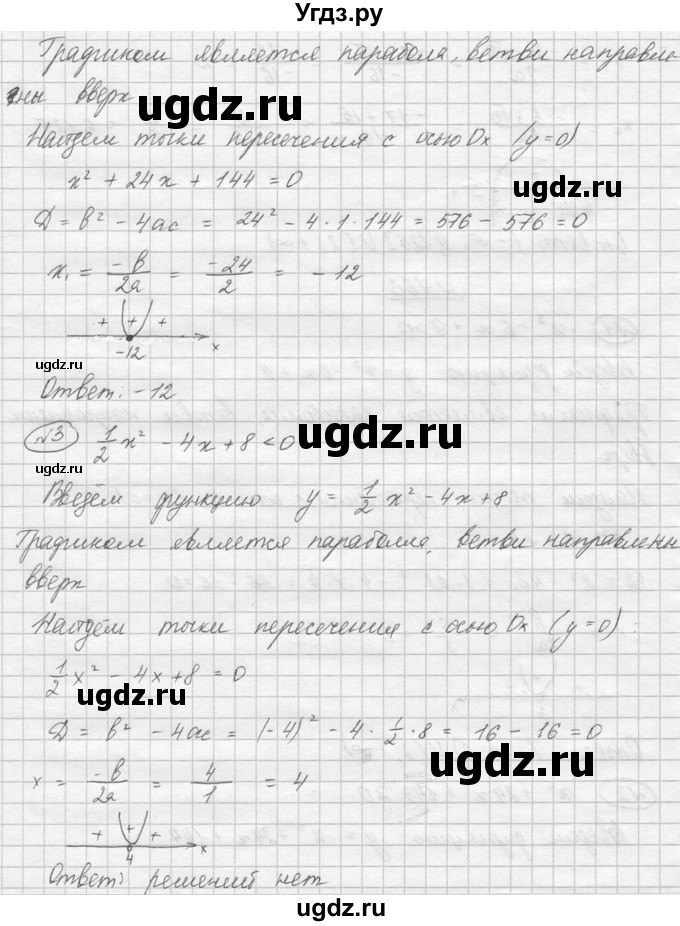 Угдз.ру
Графиком является парабола, ветви направле-
ны вверх
ugdz.ru
Найдем точки пересечения с осью Ox (y=0)
x² + 24x + 144 = 0
ugdz.ru
D = b² - 4ac = 24² - 4·1·144 = 576 - 576 = 0
x₁ = -b/2a = -24/2 = -12
+ + +
-12 x
ugdz.ru
Ответ: -12
ugdz.ru
№3 1/2 x² - 4x + 8 < 0
Введём функцию y = 1/2 x² - 4x + 8
Графиком является параболля, ветви направленн
вверх
ugdz.ru
Найдём точки пересечения с осью Ox (y=0):
1/2 x² - 4x + 8 = 0
ugdz.ru
D = b² - 4ac = (-4)² - 4·1/2·8 = 16 - 16 = 0
ugdz.ru
x = -b/2a = 4/1 = 4
ugdz.ru
+ + +
4 x
Ответ: решений нет
ugdz.ru